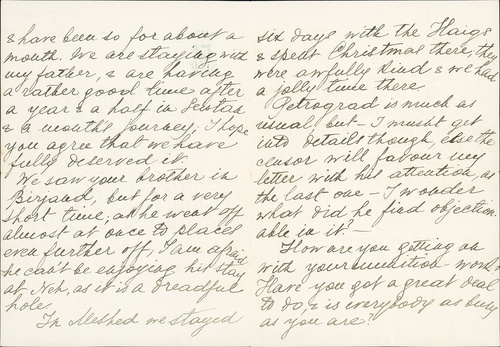 & have been so for about a
month. We are staying with
my father, & are having
a rather good time after
a year & a half in Seistan
& a month's journey; I hope
you agree that we have
fully deserved it.
We saw your brother in
Birjand, but for a very
short time, as he went off
almost at once to places
even further off; I am afraid
he can't be enjoying his stay
at Neh, as it is a dreadful
hole.
In Meshed we stayed
six days with the Haigs
& spent Christmas there; they
were awfully kind & we had
a jolly time there.
Petrograd is much as
usual, but – I mustn't get
into details though, else the
censor will favour my
letter with his attention, as
the last one – I wonder
what did he find objection
able in it? –
How are you getting on
with your munition work?
Have you got a great deal
to do, & is everybody as busy
as you are?